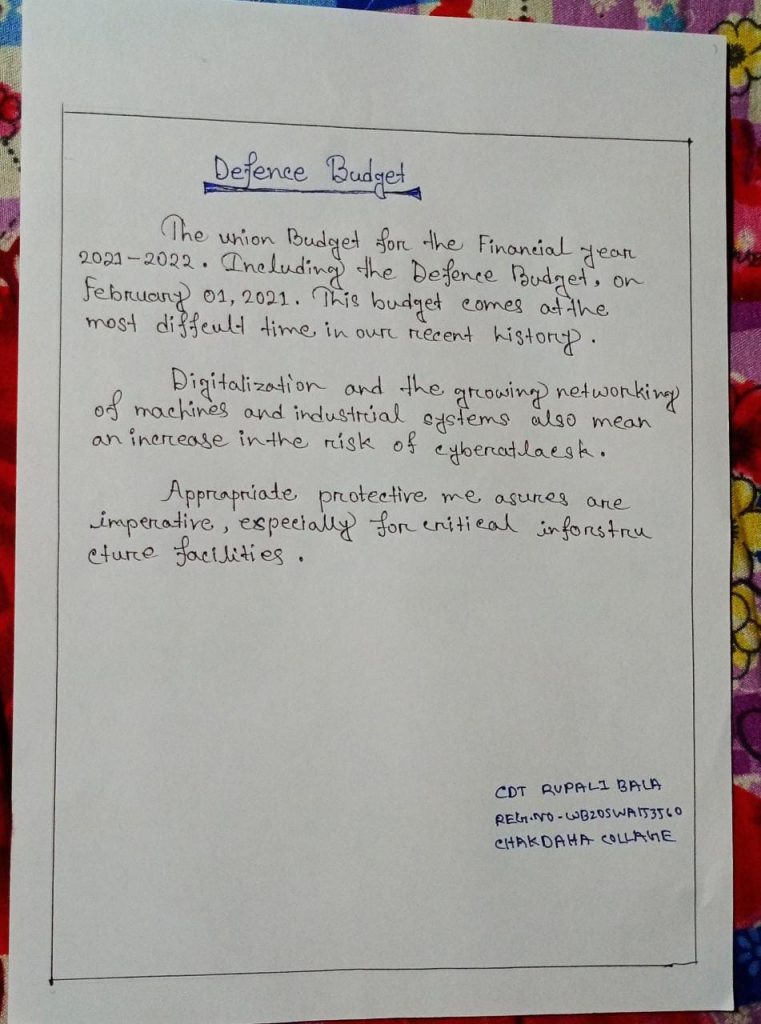 Defence Budget
The union Budget for the Financial year
2021-2022. Including the Defence Budget, on
February 01, 2021. This budget comes at the
most diffcult time in our recent history.
Digitalization and the growing networking
of machines and industrial systems also mean
an increase in the risk of cyberatlaesk.
Appropriate protective me asures are
imperative, especially for critical inforstru
cture facilities.
CDT RUPALI BALA
REG.NO-WB20SWA153560
CHAKDAHA COLLAGE